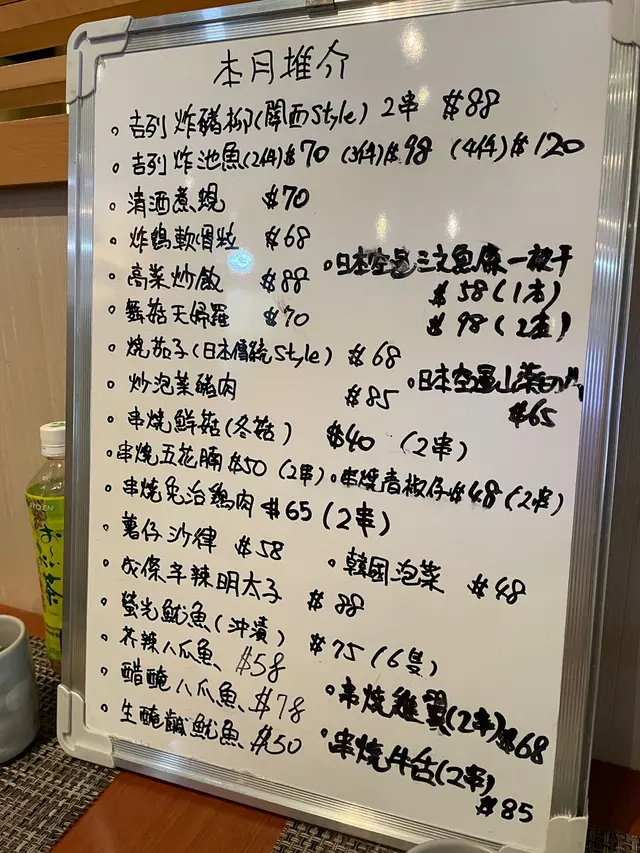 本月推介
。吉列炸豬柳(関西Style) 2串 $88
。吉列炸池魚(2件)$70 (3件)$98 (4件)$120
。清酒煮蜆 $70
。炸鶏軟骨粒 $68
。高菜炒飯 $88
。舞菇天婦羅 $70
。日本空運三文魚條一夜干
$58(1本)
$98(2本)
。燒茄子(日本傳統Style) $68
。炒泡菜豬肉 $85
。日本空運山藥
$65
。串燒鮮菇(冬菇) $40 (2串)
。串燒五花腩 $50 (2串)
。串燒青椒仔 $48(2串)
。串燒免治鶏肉 $65(2串)
。薯仔沙律 $58
。韓國泡菜 $48
。成條辛辣明太子 $88
。螢光魷魚(沖漬) $75(6隻)
。芥辣八爪魚 $58
。醋醃八爪魚 $78
。生醃鹹魷魚 $50
。串燒雞翼(2串)$68
。串燒牛舌(2串)
$85
ITO EN
お～いお茶